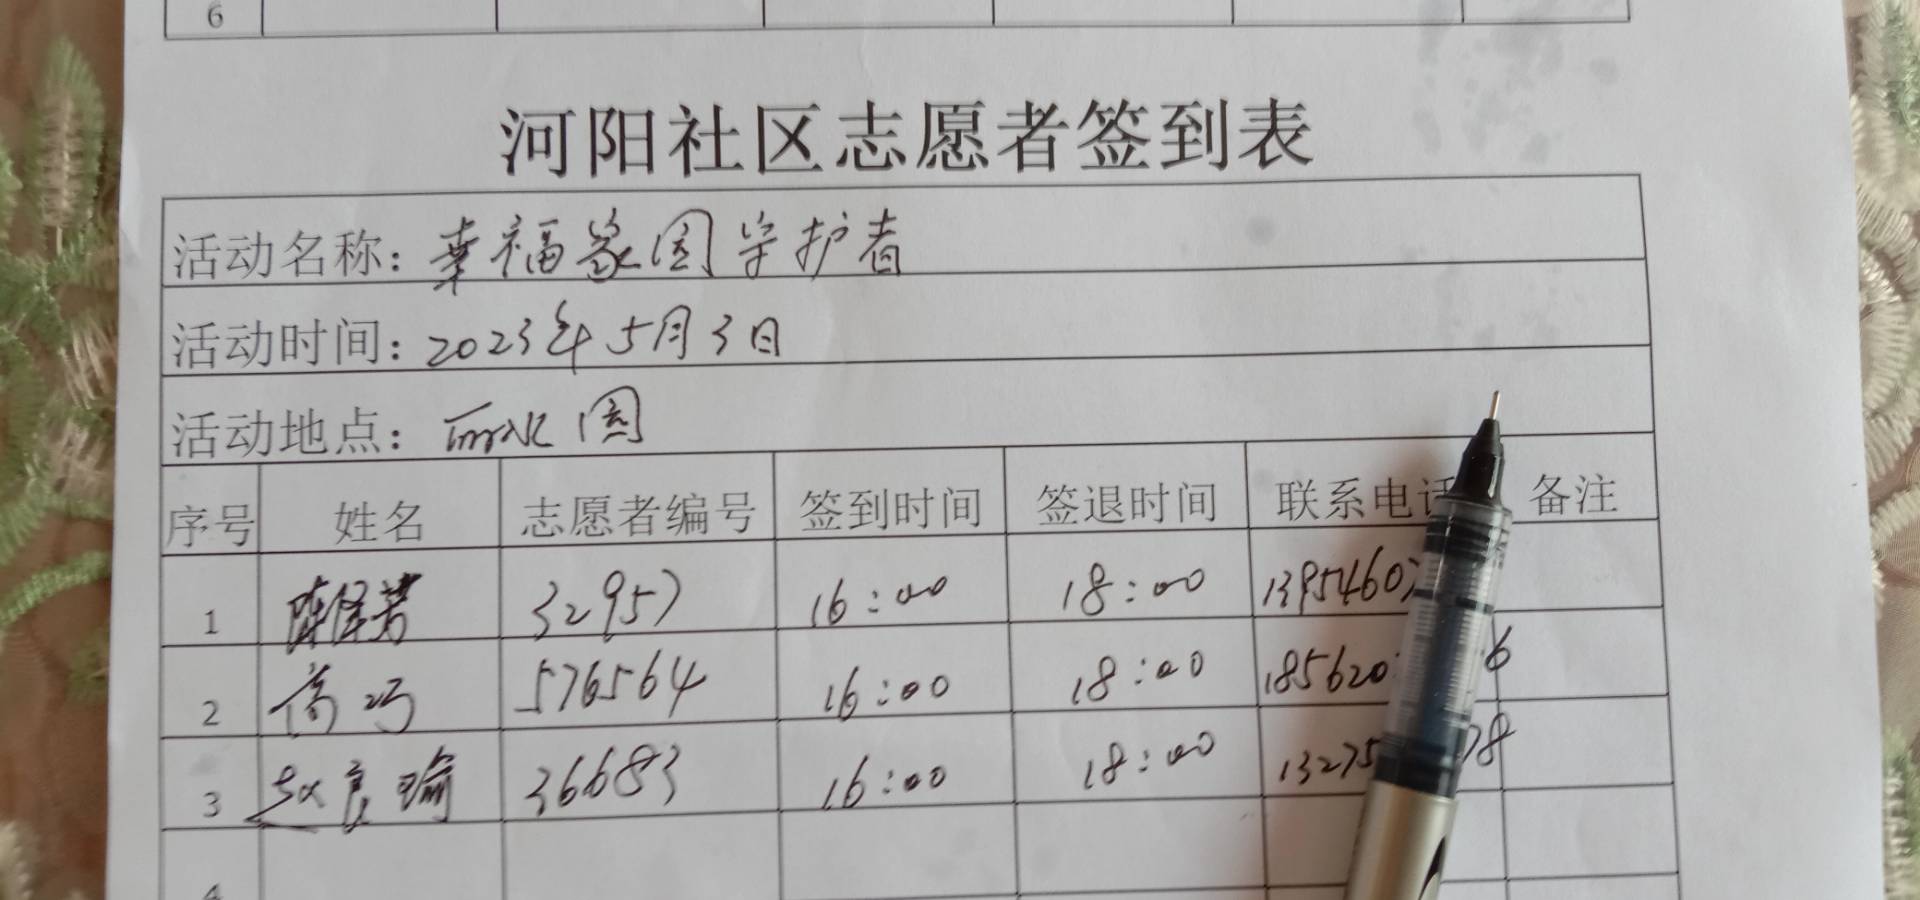 6
河阳社区志愿者签到表
活动名称：幸福家园守护者
活动时间：2023年5月3日
活动地点：丽水园
序号 姓名 志愿者编号 签到时间 签退时间 联系电话 备注
1 陈泽芳 32957 16:00 18:00 1395460
2 高巧 576564 16:00 18:00 185620 6
3 赵良瑜 36683 16:00 18:00 13275 78
4